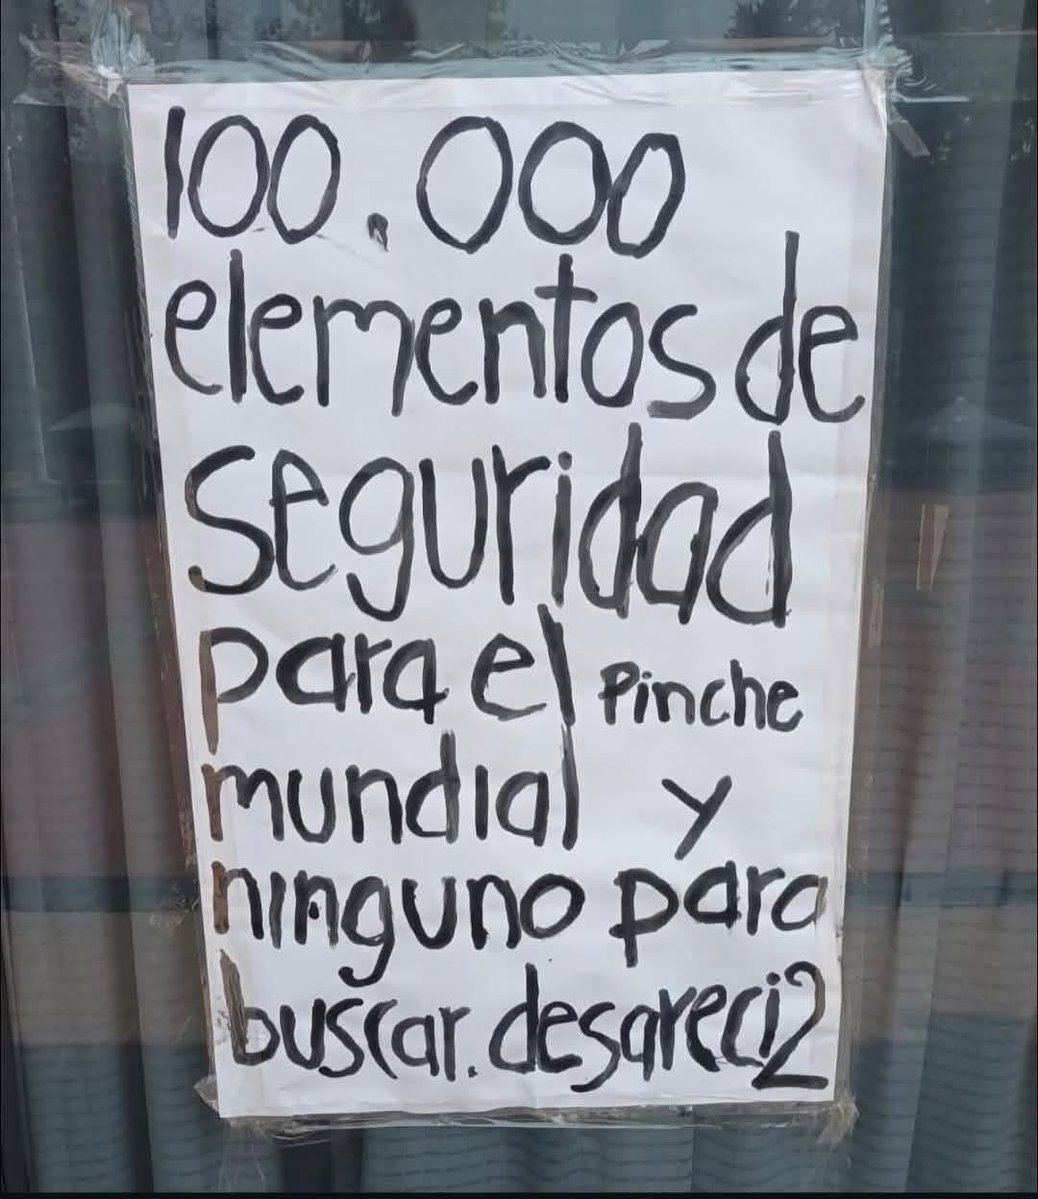 100.000
elementos de
seguridad
para el Pinche
mundial y
ninguno para
buscar. desareci2